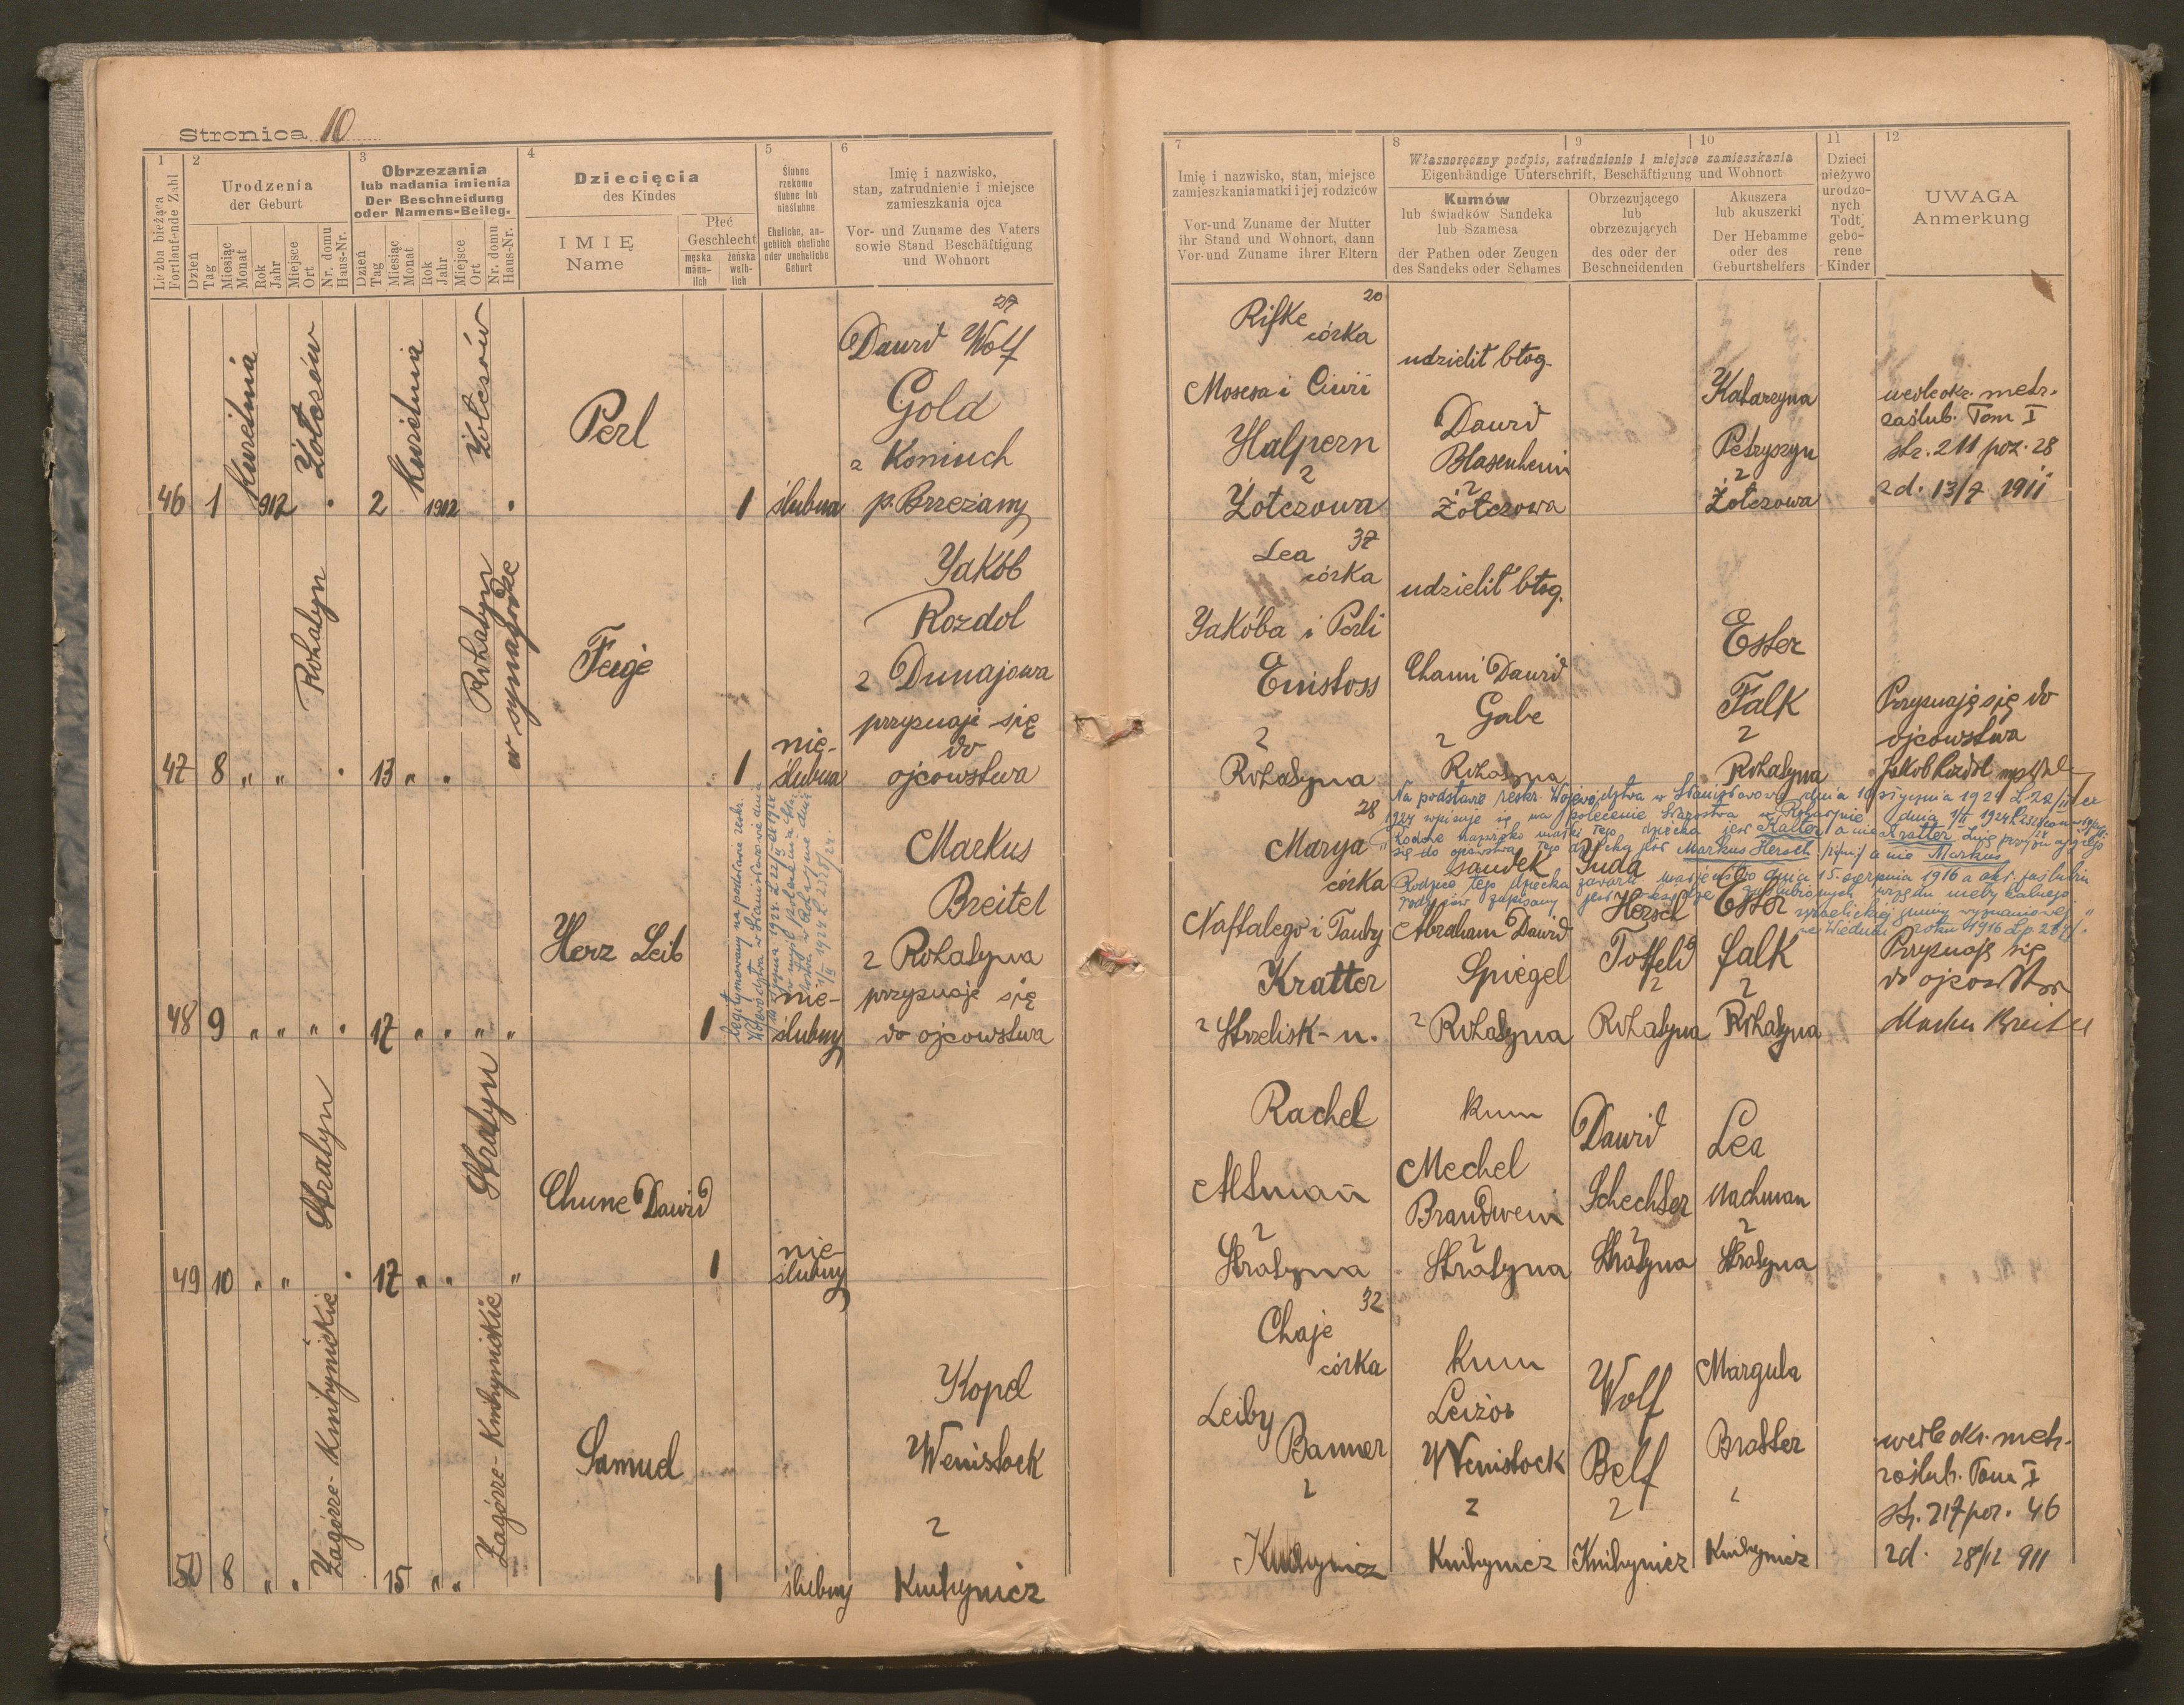 Stronica 10
1
2
3
4
5
6
Liczba bieżąca
Fortlaufende Zahl
Urodzenia
der Geburt
Obrzezania
lub nadania imienia
Der Beschneidung
oder Namens-Beileg.
Dziecięcia
des Kindes
Ślubne
rzekomo
ślubne lub
nieślubne
Eheliche, an-
geblich eheliche
oder uneheliche
Geburt
Imię i nazwisko,
stan, zatrudnienie i miejsce
zamieszkania ojca
Vor- und Zuname des Vaters
sowie Stand Beschäftigung
und Wohnort
Dzień
Tag
Miesiąc
Monat
Rok
Jahr
Miejsce
Ort
Nr. domu
Haus-Nr.
Dzień
Tag
Miesiąc
Monat
Rok
Jahr
Miejsce
Ort
Nr. domu
Haus-Nr.
IMIĘ
Name
Płeć
Geschlecht
męska
männ-
lich
żeńska
weib-
lich
46 1 Kwietnia 912 Żołczów
2 Kwietnia 1912 Żołczów
Perl
1 ślubna
27
Dawid Wolf
Gold
z Koniuch
p. Brzeżany
47 8 " " Rohatyn
13 " " Rohatyn
w synagodze
Feige
1 nie-
ślubna
Jakób
Rozdol
z Dunajowa
przyznaje się
do
ojcowstwa
48 9 " " " "
17 " " " "
Herz Leib
1
legitymowany na podstawie reskr.
Województwa w Stanisławowie dnia
nie-
ślubny
Markus
Breitel
z Rohatyna
przyznaje się
do ojcowstwa
49 10 " " Stratyn
17 " " Stratyn "
Chune Dawid
1 nie-
ślubny
50 8 " " Zagórze-Knihynickie
15 " " Zagórze-Knihynickie
Samuel
1 ślubny
Kopel
Weinstock
z
Knihynicz
7
8
9
10
11
12
Imię i nazwisko, stan, miejsce
zamieszkania matki i jej rodziców
Vor-und Zuname der Mutter
ihr Stand und Wohnort, dann
Vor-und Zuname ihrer Eltern
Własnoręczny podpis, zatrudnienie i miejsce zamieszkania
Eigenhändige Unterschrift, Beschäftigung und Wohnort
Kumów
lub świadków Sandeka
lub Szamesa
der Pathen oder Zeugen
des Sandeks oder Schames
Obrzezującego
lub
obrzezujących
des oder der
Beschneidenden
Akuszera
lub akuszerki
Der Hebamme
oder des
Geburtshelfers
Dzieci
nieżywo
urodzo-
nych
Todt
gebo-
rene
Kinder
UWAGA
Anmerkung
20
Rifke
córka
Mosesa i Ciwii
Halpern
z
Żołczowa
udzielił błog.
Dawid
Blasenheim
z
Żołczowa
Katarzyna
Petryszyn
z
Żołczowa
wedle okr. metr.
zaślub. Tom I
str. 211 poz. 28
z d. 13/7 1911
Lea 37
córka
Jakóba i Perli
Einstoss
z
Rohatyna
udzielił błog.
Chaim Dawid
Gabe
z
Rohatyna
Ester
Falk
z
Rohatyna
Przyznaję się do
ojcowstwa
Jakob Rozdol
28
Marya
córka
Naftalego i Tauby
Kratter
z Strzelisk-n.
Na podstawie reskr. Województwa w Stanisławowie dnia
1924 wpisuje się na polecenie Starostwa w Rohatynie
nazwisko matki tego dziecka jest Kalter a nie Kratter
się do ojcowstwa tego dziecka jest Markus Hersch a nie Markus
Rodzice tego dziecka zawarli małżeństwo dnia 15. sierpnia 1916
sandek
Abraham Dawid
Spiegel
z Rohatyna
Juda
Hersch
Toffeld
z
Rohatyna
Ester
Falk
z
Rohatyna
Przyznaję się
do ojcowstwa
Markus Breitel
Rachel
Altman
z
Stratyna
kum
Mechel
Brandwein
z
Stratyna
Dawid
Schechter
z
Stratyna
Lea
Nachman
z
Stratyna
32
Chaje
córka
Leiby
Banner
z
Knihynicz
kum
Leizor
Weinstock
z
Knihynicz
Wolf
Belf
z
Knihynicz
Margula
Bratter
z
Knihynicz
wedle okr. metr.
zaślub. Tom I
str. 217 poz. 46
z d. 28/12 911